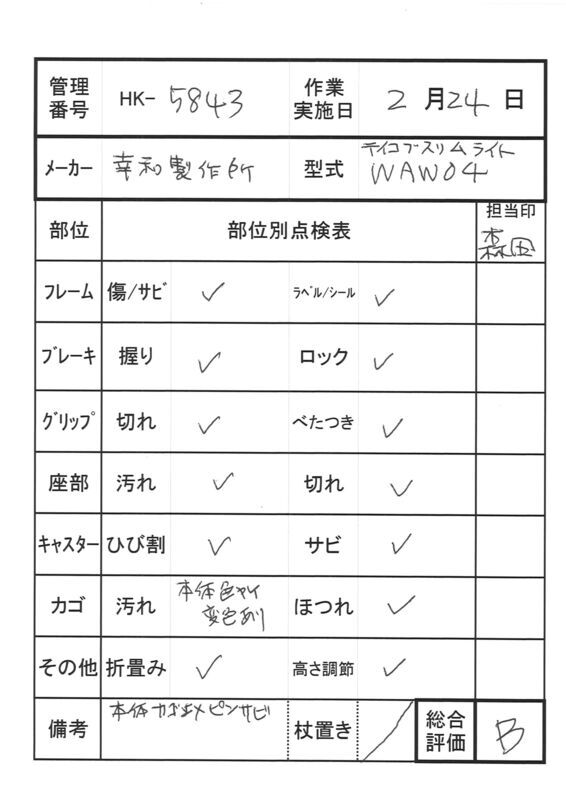 管理番号 HK- 5843 作業実施日 2月24日
メーカー 幸和製作所 型式 テイコブスリムライト WAW04
部位 部位別点検表 担当印
森田
フレーム 傷/サビ ✓ ラベル/シール ✓
ブレーキ 握り ✓ ロック ✓
グリップ 切れ ✓ べたつき ✓
座部 汚れ ✓ 切れ ✓
キャスター ひび割 ✓ サビ ✓
カゴ 汚れ 本体色ヤケ 変色あり ほつれ ✓
その他 折畳み ✓ 高さ調節 ✓
備考 本体カゴ止メピンサビ 杖置き / 総合評価 B